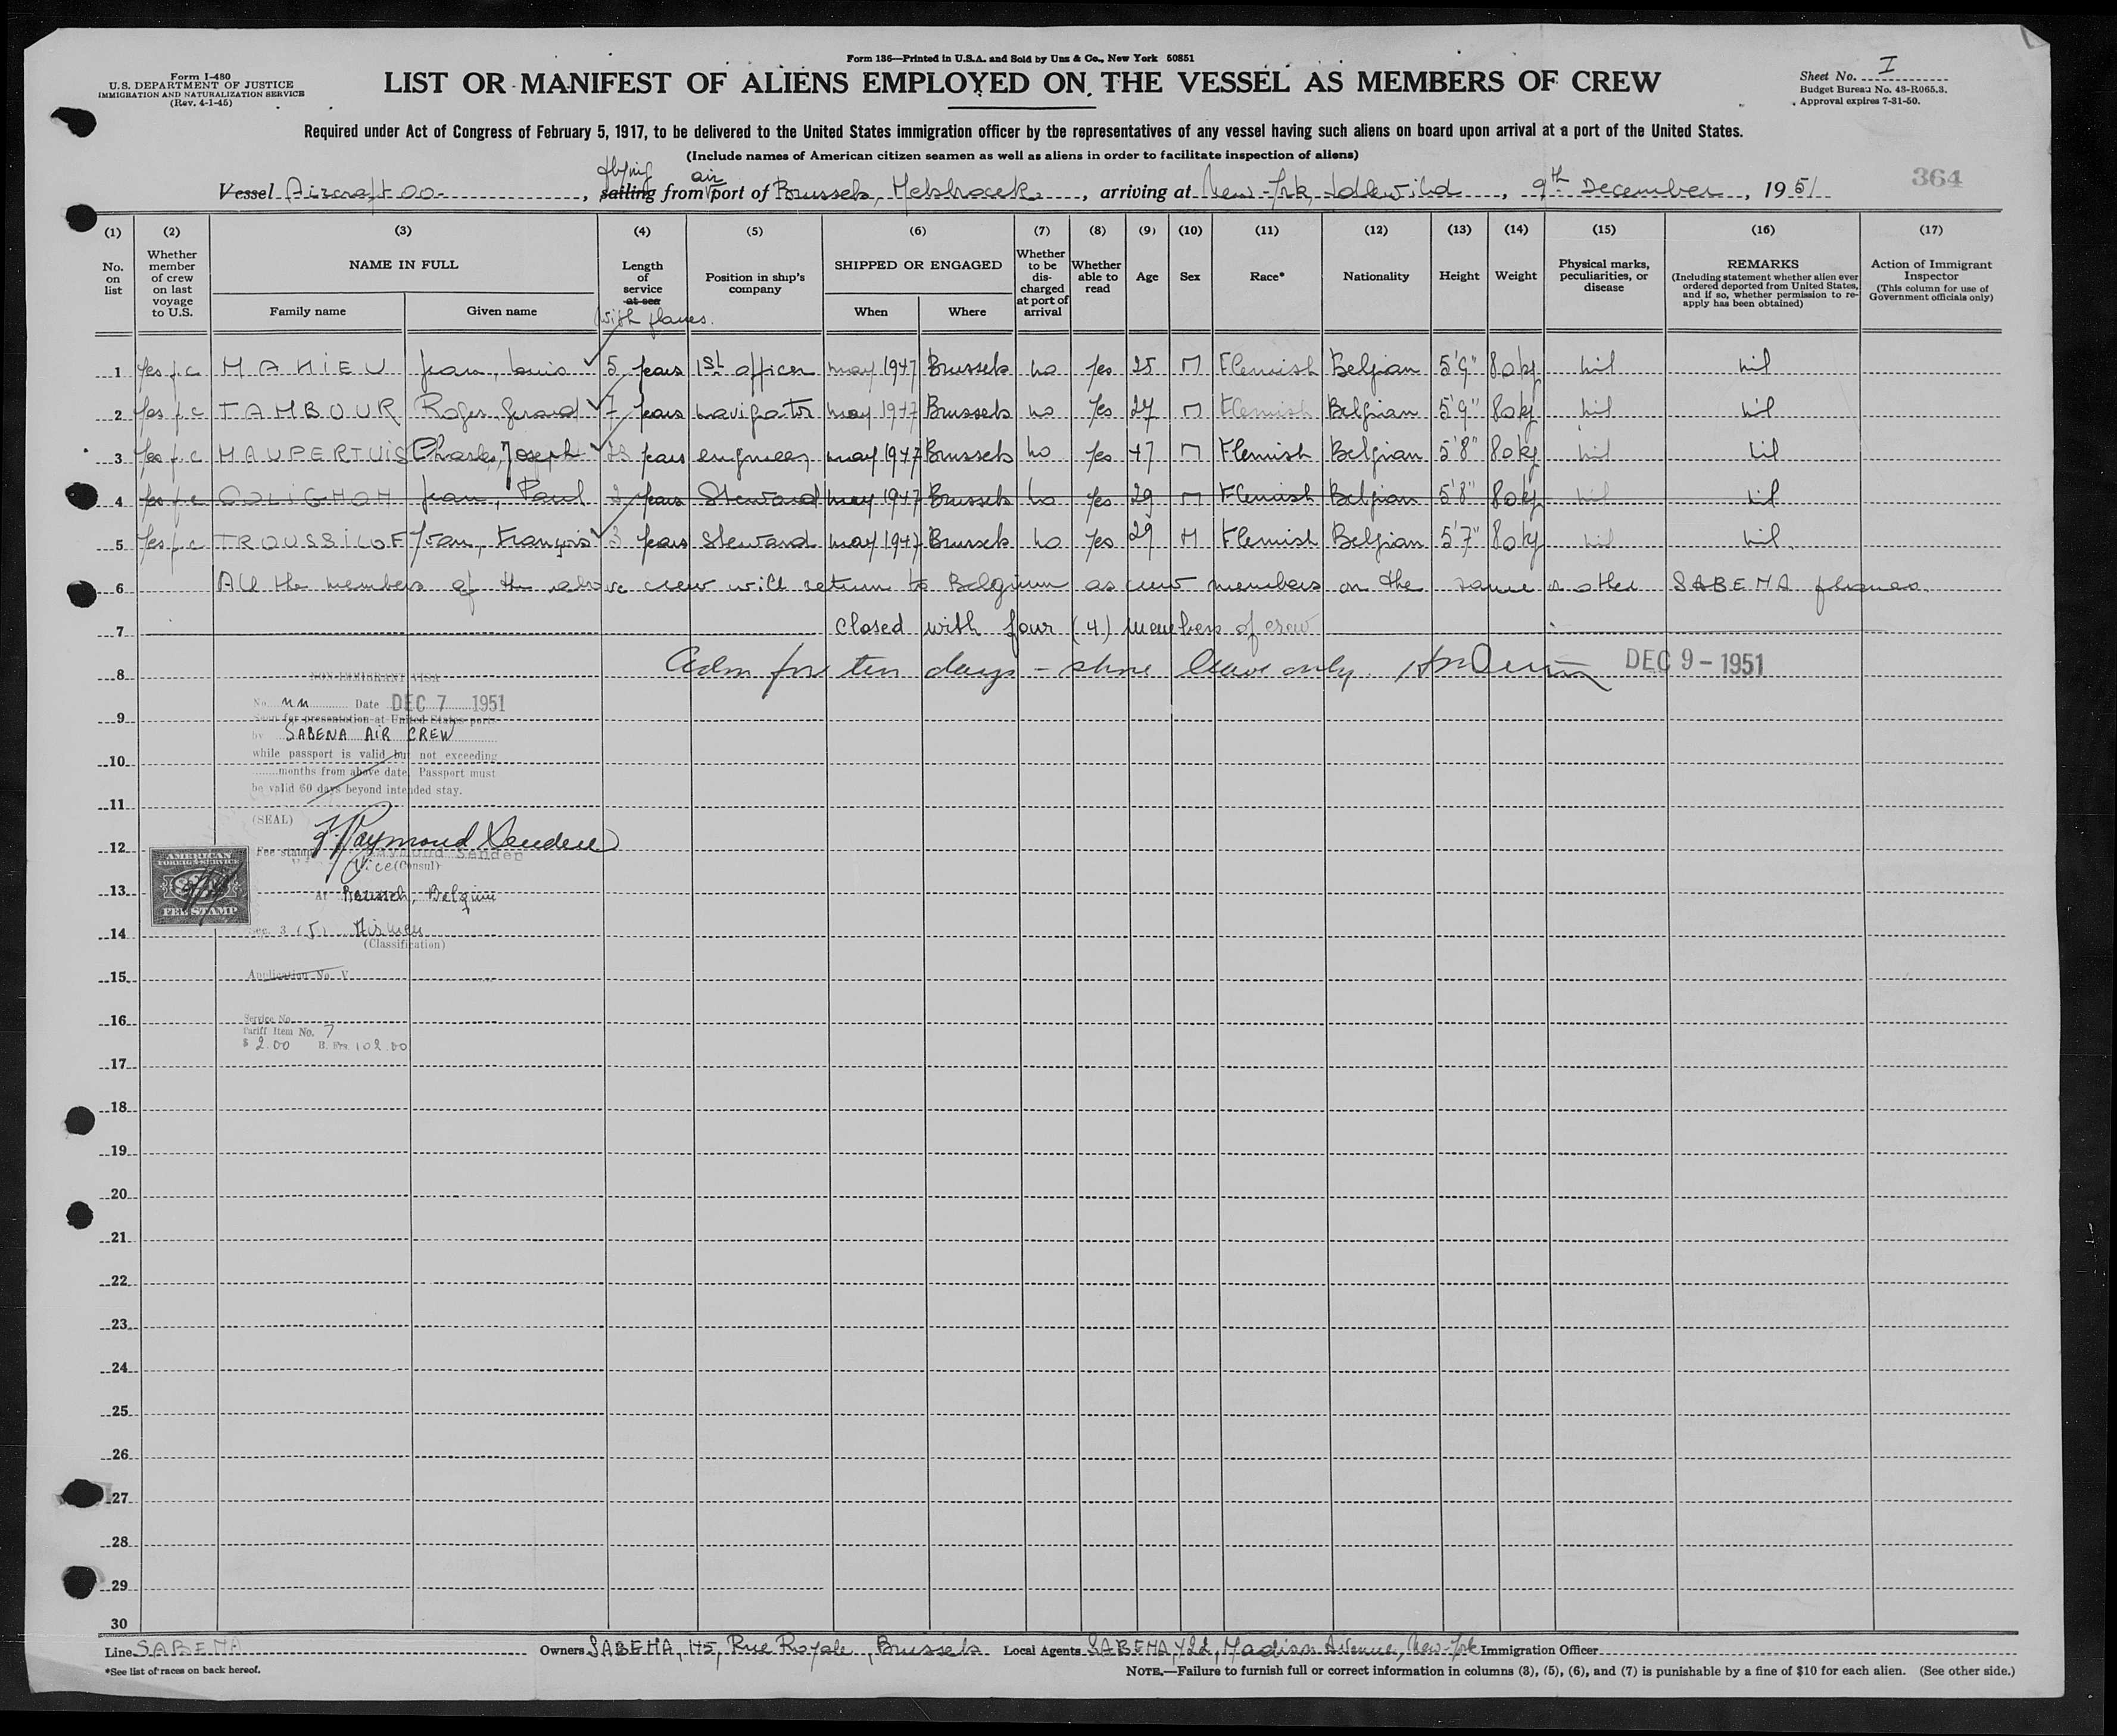 Form 136—Printed in U.S.A. and Sold by Unz & Co., New York 50851
Form I-480
U.S. DEPARTMENT OF JUSTICE
IMMIGRATION AND NATURALIZATION SERVICE
(Rev. 4-1-45)
LIST OR MANIFEST OF ALIENS EMPLOYED ON THE VESSEL AS MEMBERS OF CREW
Sheet No. I
Budget Bureau No. 43-R065.3.
Approval expires 7-31-50.
Required under Act of Congress of February 5, 1917, to be delivered to the United States immigration officer by the representatives of any vessel having such aliens on board upon arrival at a port of the United States.
(Include names of American citizen seamen as well as aliens in order to facilitate inspection of aliens)
flying air
Vessel Aircraft OO- , sailing from port of Brussels, Melsbroeck , arriving at New-York, Idlewild , 9th December , 1951
364
(1) (2) (3) (4) (5) (6) (7) (8) (9) (10) (11) (12) (13) (14) (15) (16) (17)
No. on list
Whether member of crew on last voyage to U.S.
NAME IN FULL
Family name Given name
Length of service at sea
with planes.
Position in ship's company
SHIPPED OR ENGAGED
When Where
Whether to be discharged at port of arrival
Whether able to read
Age
Sex
Race*
Nationality
Height
Weight
Physical marks, peculiarities, or disease
REMARKS
(Including statement whether alien ever ordered deported from United States, and if so, whether permission to reapply has been obtained)
Action of Immigrant Inspector
(This column for use of Government officials only)
1 Yes f.c. MAHIEU Jean, Louis 5 years 1st officer may 1947 Brussels no Yes 25 M Flemish Belgian 5'9" 80kg nil nil
2 Yes f.c. TAMBOUR Roger, Gerard 7 years navigator may 1947 Brussels no Yes 27 M Flemish Belgian 5'9" 80kg nil nil
3 Yes f.c. MAUPERTUIS Charles, Joseph years engineer may 1947 Brussels no Yes 47 M Flemish Belgian 5'8" 80kg nil nil
4 Yes f.c. Jean, Paul years Steward may 1947 Brussels no Yes 29 M Flemish Belgian 5'8" 80kg nil nil
5 Yes f.c. TROUSSILOF Yvan, François 3 years Steward may 1947 Brussels no Yes 29 M Flemish Belgian 5'7" 80kg nil nil.
6 All the members of the above crew will return to Belgium as crew members on the same or other SABENA planes.
7 Closed with four (4) members of crew
8 Adm for ten days - shore leave only. DEC 9 - 1951
NON-IMMIGRANT VISA
No. Date DEC 7 1951
Seen for presentation at United States ports
by SABENA AIR CREW
while passport is valid but not exceeding
months from above date. Passport must
be valid 60 days beyond intended stay.
(SEAL)
F. Raymond Sender
Fee stamp Raymond Sender
Vice (Consul)
At Brussels, Belgium
Sec. 3 (5) Airmen
(Classification)
Application No. V
Service No.
Tariff Item No. 7
$ 2.00 B. Frs. 102.00
AMERICAN
FOREIGN SERVICE
FEE STAMP
9
10
11
12
13
14
15
16
17
18
19
20
21
22
23
24
25
26
27
28
29
30
Line SABENA Owners SABENA, 145, Rue Royale, Brussels Local Agents SABENA, 422, Madison Avenue, New-York Immigration Officer
*See list of races on back hereof.
NOTE.—Failure to furnish full or correct information in columns (3), (5), (6), and (7) is punishable by a fine of $10 for each alien. (See other side.)